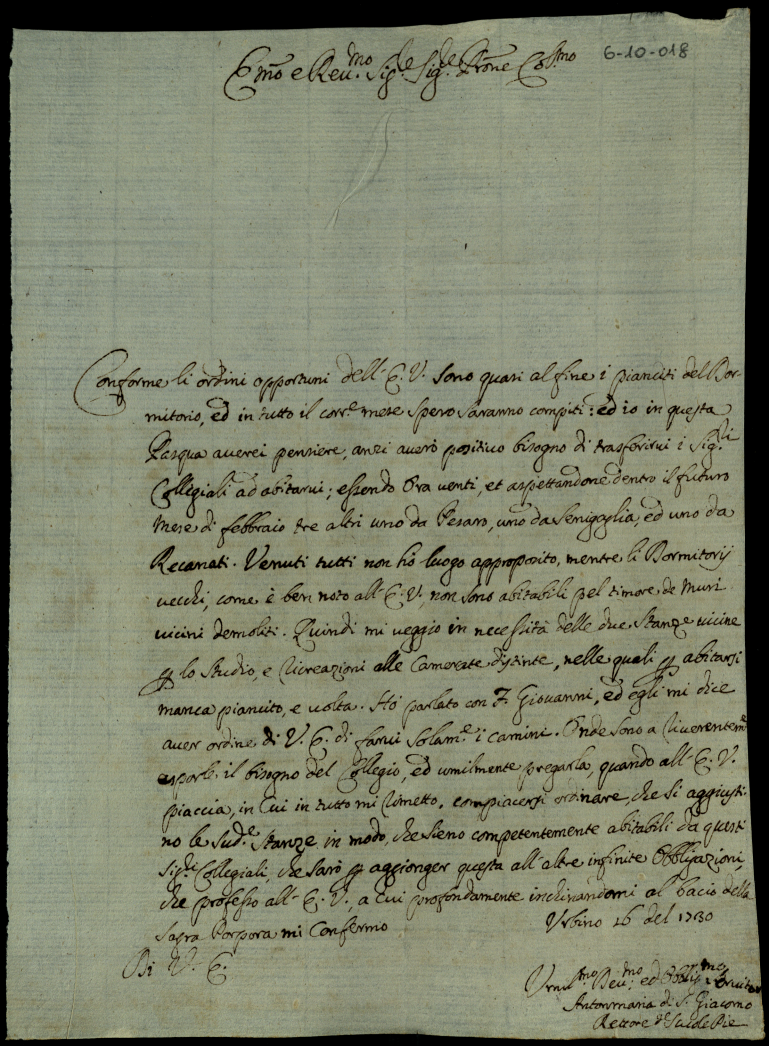 6-10-018
Emo e Rev.mo Sig.e Sig.e Prone Col.mo
Conforme li ordini opportuni dell' E. V. sono quasi al fine i pianciti del Dor-
mitorio, ed in tutto il corr.e mese spero saranno compiti: ed io in questa
Pasqua averei pensiere, anzi averò positivo bisogno di trasferirvi i Sig.ri
Collegiali ad abitarvi; essendo Ora venti, et aspettandone dentro il futuro
Mese di febbraio tre altri uno da Pesaro, uno da Senigaglia, ed uno da
Recanati. Venuti tutti non hò luogo approposito, mentre li Dormitorij
vecchi, come è ben noto all' E. V. non sono abitabili pel timore de Muri
vicini demoliti. Quindi mi veggio in necessità delle due Stanze vicine
p lo studio, e ricreazioni alle Camerate distinte, nelle quali p abitarsi
manca piancito, e volta. Hò parlato con F. Giovanni, ed egli mi dice
aver ordine di V. E. di farvi solam.e i camini. Onde sono a riverentem.e
esporle il bisogno del Collegio, ed umilmente pregarla, quando all' E. V.
piaccia, in cui in tutto mi rimetto, compiacersi ordinare, che si aggiusti-
no le sud.e Stanze in modo, che sieno competentemente abitabili da questi
Sig.ri Collegiali, che sarò p aggionger questa all' altre infinite Obbligazioni,
che professo all' E. V., a cui profondamente inchinandomi al bacio della
Sagra Porpora mi Confermo
Urbino 16 del 1730
Di V. E.
Umil.mo Dev.mo, ed Obblig.mo
Antonmaria di S. Giacomo
Rettore d Scuole Pie